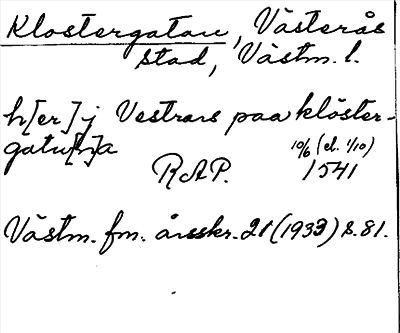 Klostergatan, Västerås
stad, Västm. l.
h[er] j Vestrars paa klöster-
gatu[n]a 10/6 (el. 1/10)
RAP. 1541
Västm. fm. årsskr. 21 (1933) s. 81.